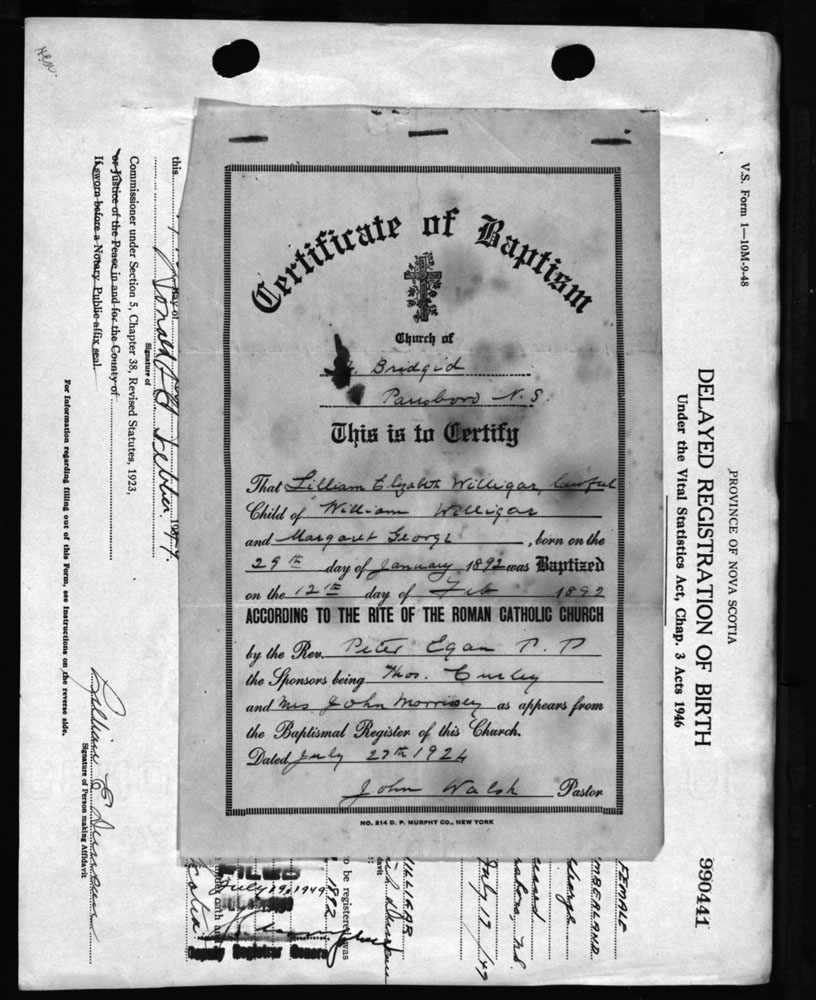 Certificate of Baptism
Church of
Bridgid
Parrsboro N.S.
This is to Certify
That Lilliam Elizabeth Willigar, lawful
Child of William Willigar
and Margaret George, born on the
29th day of January 1892 was Baptized
on the 12th day of Feb 1892
ACCORDING TO THE RITE OF THE ROMAN CATHOLIC CHURCH
by the Rev. Peter Egan P. P
the Sponsors being Thos. Curley
and Mrs John Morrisey as appears from
the Baptismal Register of this Church.
Dated July 27th 1924
John Walsh Pastor
NO. 214 D. P. MURPHY CO., NEW YORK
V.S. Form 1—10M-9-48
PROVINCE OF NOVA SCOTIA
DELAYED REGISTRATION OF BIRTH
Under the Vital Statistics Act, Chap. 3 Acts 1946
990441
FEMALE
MBERLAND
George
July 19/49
ILLIGAR
davit
to be registered was
1892
FILED
July 29, 1949
Deputy Registrar General
this
day of
Signature of
Commissioner under Section 5, Chapter 38, Revised Statutes, 1923,
or Justice of the Peace in and for the County of
If sworn before a Notary Public affix seal.
For Information regarding filling out of this Form, see Instructions on the reverse side.
Signature of Person making Affidavit